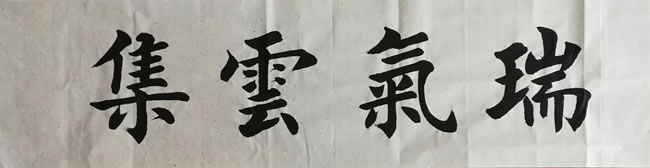 瑞氣雲集